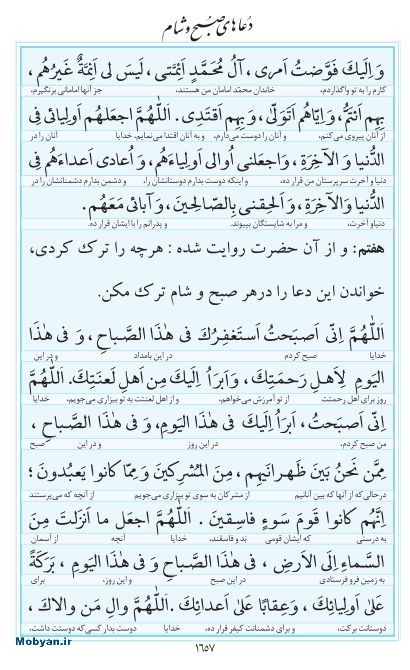 دعاهای صبح و شام
وَ اِلَیكَ فَوَّضتُ اَمری ، آلُ مُحَمَّدٍ اَئِمَّتی ، لَیسَ لی اَئِمَّةٌ غَیرُهُم ،
کارم را به تو واگذاردم، خاندان محمّد امامان من هستند، جز آنها امامانی برنگیرم،
بِهِم اَئتَمُّ ، وَ اِیّاهُم اَتَوَلّیٰ ، وَ بِهِم اَقتَدی . اَللّٰهُمَّ اجعَلهُم اَولِیائی فِی
از آنان پیروی می‌کنم، و آنان را دوست می‌دارم، و به آنان اقتدا می‌نمایم. خدایا آنان را در
الدُّنیا وَ الآخِرَةِ ، وَ اجعَلنی اُوالی اَولِیاءَهُم ، وَ اُعادی اَعداءَهُم فِی
دنیا و آخرت سرپرستان من قرار ده، و اینکه دوست بدارم دوستانشان را، و دشمن بدارم دشمنانشان را در
الدُّنیا وَ الآخِرَةِ ، وَ اَلحِقنی بِالصّالِحینَ ، وَ آبائی مَعَهُم .
دنیا و آخرت، و مرا به شایستگان بپیوند. و پدرانم را با ایشان قرار ده.
هفتم: و از آن حضرت روایت شده : هرچه را ترک کردی،
خواندن این دعا را درهر صبح و شام ترک مکن.
اَللّٰهُمَّ اِنّی اَصبَحتُ اَستَغفِرُكَ فی هٰذَا الصَّباحِ ، وَ فی هٰذَا
خدایا صبح کردم در این بامداد و در این
الیَومِ لِاَهلِ رَحمَتِكَ ، وَ اَبرَأُ اِلَیكَ مِن اَهلِ لَعنَتِكَ . اَللّٰهُمَّ
روز برای اهل رحمتت از تو آمرزش می‌خواهم، و از اهل لعنتت به تو بیزاری می‌جویم. خدایا
اِنّی اَصبَحتُ ، اَبرَأُ اِلَیكَ فی هٰذَا الیَومِ ، وَ فی هٰذَا الصَّباحِ ،
من صبح کردم، در این روز و در این صبح
مِمَّن نَحنُ بَینَ ظَهرانَیهِم ، مِنَ المُشرِکینَ وَ مِمّا کانوا یَعبُدونَ ؛
درحالی‌که از آنها که بین آنانیم از مشرکان به سوی تو بیزاری می‌جویم از آنچه که می‌پرستند
اِنَّهُم کانوا قَومَ سَوءٍ فاسِقینَ . اَللّٰهُمَّ اجعَل ما اَنزَلتَ مِنَ
به درستی که ایشان قومی بد و فاسقند. خدایا آنچه از آسمان
السَّماءِ اِلَی الاَرضِ ، فی هٰذَا الصَّباحِ وَ فی هٰذَا الیَومِ ، بَرَکَةً
به زمین فرو فرستادی در این صبح و این روز، برای
عَلیٰ اَولِیائِكَ ، وَ عِقابًا عَلیٰ اَعدائِكَ . اَللّٰهُمَّ والِ مَن والاكَ ،
دوستانت برکت، و برای دشمنانت کیفر قرار ده. خدایا دوست بدار کسی‌که دوستت داشت،
۱۶۵۷
Mobyan.ir